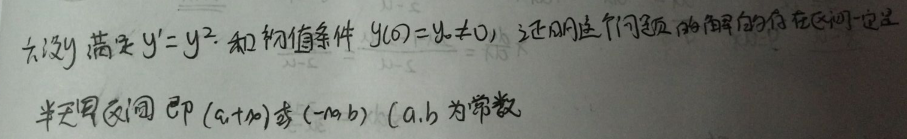 六设y 满足 y'=y². 和初值条件 y(0)=y₀≠0, 证明这个问题的解的存在区间一定是
半无界区间 即 (a,+∞) 或 (-∞,b) (a.b 为常数